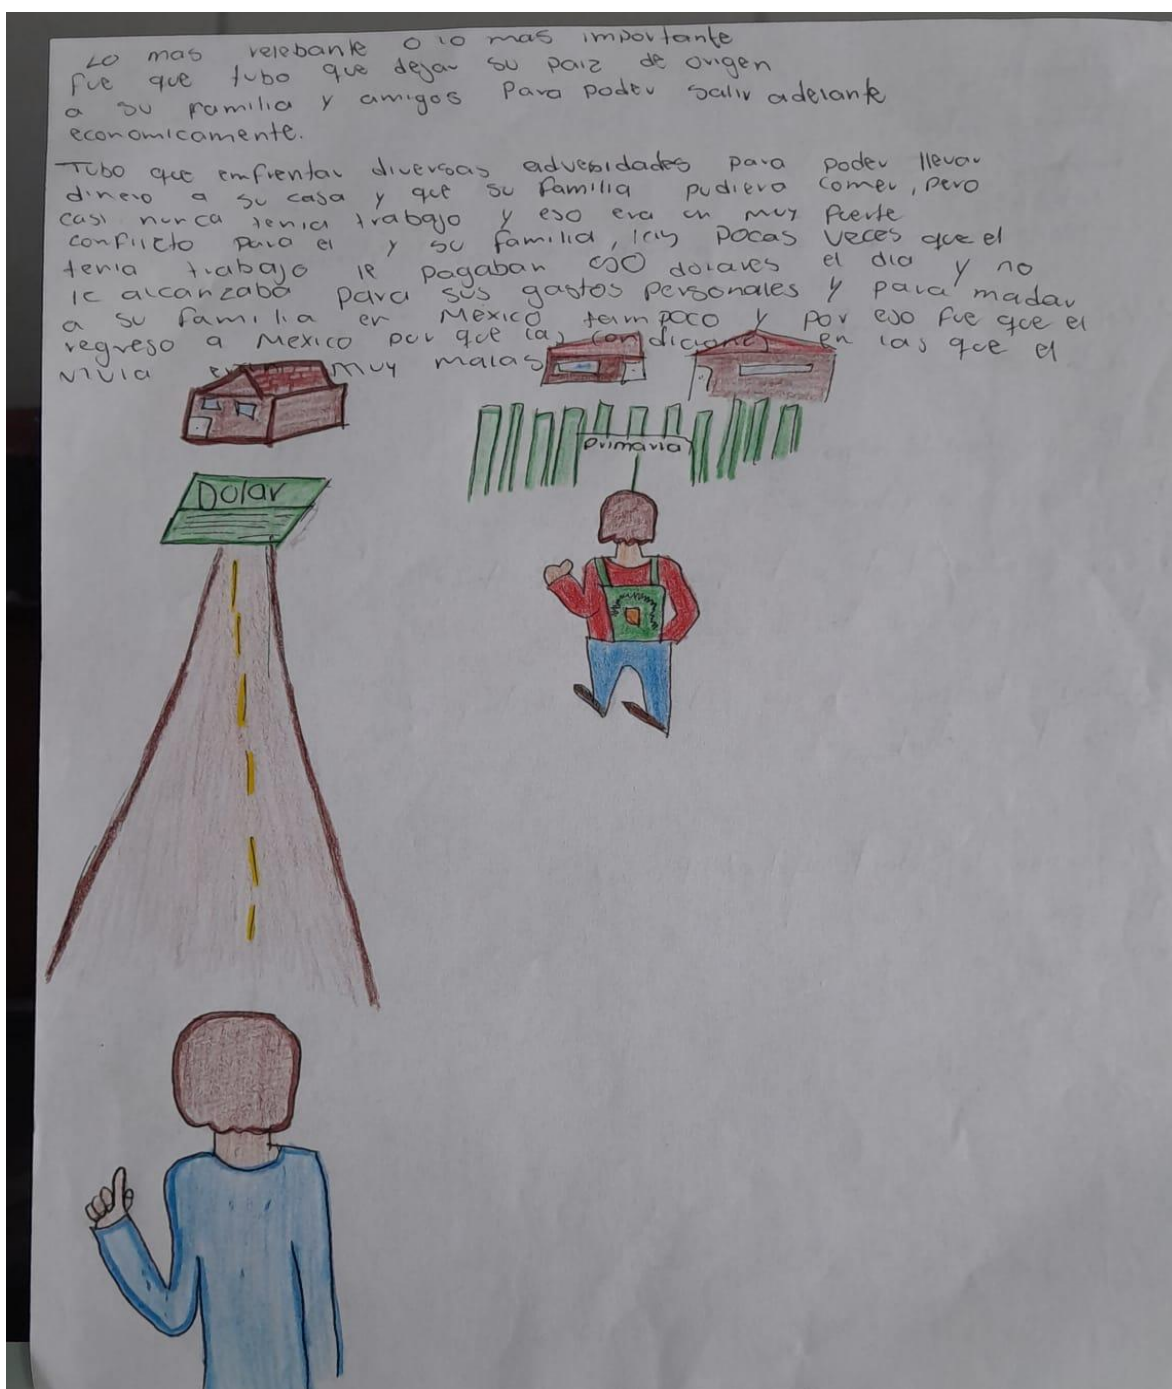 Lo mas relebante o lo mas importante
fue que tubo que dejar su paiz de origen
a su familia y amigos para poder salir adelante
economicamente.
Tubo que emfrentar diversas advesidades para poder llevar
dinero a su casa y que su familia pudiera comer, pero
casi nunca tenia trabajo y eso era un muy fuerte
conflicto para el y su familia, las pocas veces que el
tenia trabajo le pagaban dolares el dia y no
le alcanzaba para sus gastos personales y para madar
a su familia en Mexico tampoco y por eso fue que el
regreso a Mexico por que las condiciones en las que el
vivia muy malas
Primaria
Dolar